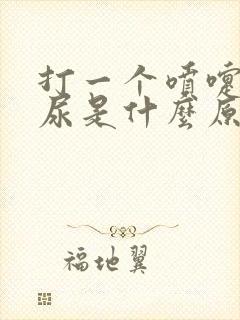 打一个喷嚏
尿是什麼原
福地翼